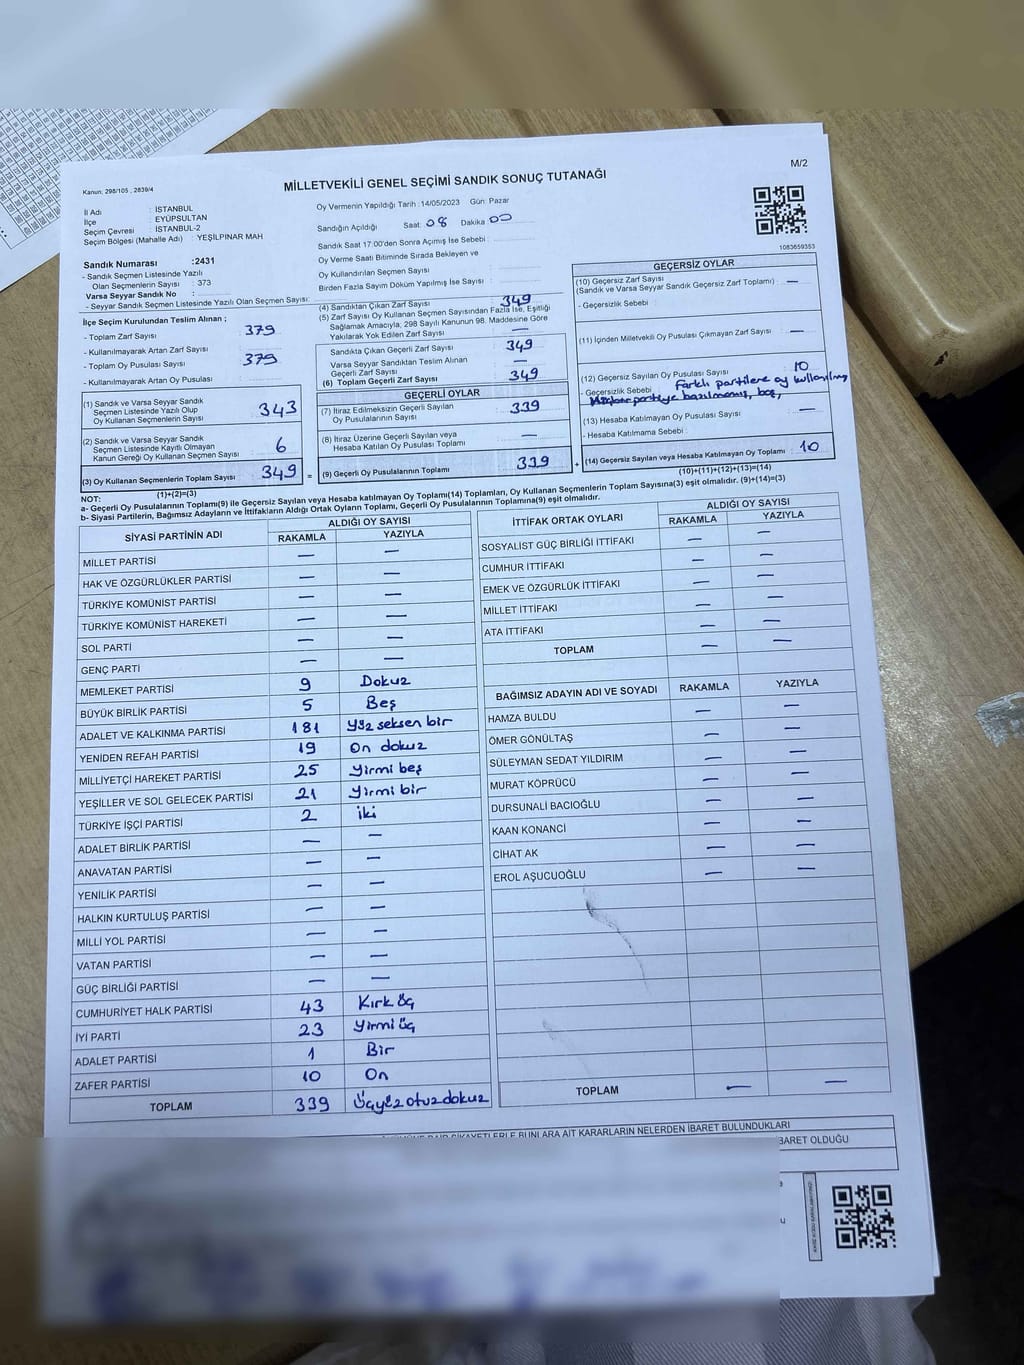 M/2
Kanun; 298/105 , 2839/4
MİLLETVEKİLİ GENEL SEÇİMİ SANDIK SONUÇ TUTANAĞI
İl Adı : İSTANBUL
İlçe : EYÜPSULTAN
Seçim Çevresi : İSTANBUL-2
Seçim Bölgesi (Mahalle Adı) : YEŞİLPINAR MAH
Sandık Numarası :2431
- Sandık Seçmen Listesinde Yazılı
Olan Seçmenlerin Sayısı : 373
Varsa Seyyar Sandık No :
- Seyyar Sandık Seçmen Listesinde Yazılı Olan Seçmen Sayısı:
Oy Vermenin Yapıldığı Tarih :14/05/2023 Gün: Pazar
Sandığın Açıldığı Saat: 08 Dakika: 00
Sandık Saat 17.00'den Sonra Açımış İse Sebebi :
Oy Verme Saati Bitiminde Sırada Bekleyen ve
Oy Kullandırılan Seçmen Sayısı :
Birden Fazla Sayım Döküm Yapılmış İse Sayısı :
1083659353
İlçe Seçim Kurulundan Teslim Alınan ;
- Toplam Zarf Sayısı : 379
- Kullanılmayarak Artan Zarf Sayısı :
- Toplam Oy Pusulası Sayısı : 379
- Kullanılmayarak Artan Oy Pusulası :
(1) Sandık ve Varsa Seyyar Sandık
Seçmen Listesinde Yazılı Olup
Oy Kullanan Seçmenlerin Sayısı : 343
(2) Sandık ve Varsa Seyyar Sandık
Seçmen Listesinde Kayıtlı Olmayan
Kanun Gereği Oy Kullanan Seçmen Sayısı : 6
(3) Oy Kullanan Seçmenlerin Toplam Sayısı : 349 =
(1)+(2)=(3)
(4) Sandıktan Çıkan Zarf Sayısı : 349
(5) Zarf Sayısı Oy Kullanan Seçmen Sayısından Fazla İse, Eşitliği
Sağlamak Amacıyla, 298 Sayılı Kanunun 98. Maddesine Göre
Yakılarak Yok Edilen Zarf Sayısı : —
Sandıkta Çıkan Geçerli Zarf Sayısı : 349
Varsa Seyyar Sandıktan Teslim Alınan
Geçerli Zarf Sayısı : —
(6) Toplam Geçerli Zarf Sayısı : 349
GEÇERLİ OYLAR
(7) İtiraz Edilmeksizin Geçerli Sayılan
Oy Pusulalarının Sayısı : 339
(8) İtiraz Üzerine Geçerli Sayılan veya
Hesaba Katılan Oy Pusulası Toplamı : —
(9) Geçerli Oy Pusulalarının Toplamı : 339 +
GEÇERSİZ OYLAR
(10) Geçersiz Zarf Sayısı
(Sandık ve Varsa Seyyar Sandık Geçersiz Zarf Toplamı) : —
- Geçersizlik Sebebi :
(11) İçinden Milletvekili Oy Pusulası Çıkmayan Zarf Sayısı : —
(12) Geçersiz Sayılan Oy Pusulası Sayısı : 10
- Geçersizlik Sebebi : Farklı partilere oy kullanılmış
partiye basılmamış, boş,
(13) Hesaba Katılmayan Oy Pusulası Sayısı : —
- Hesaba Katılmama Sebebi :
(14) Geçersiz Sayılan veya Hesaba Katılmayan Oy Toplamı : 10
(10)+(11)+(12)+(13)=(14)
NOT:
a- Geçerli Oy Pusulalarının Toplamı(9) ile Geçersiz Sayılan veya Hesaba katılmayan Oy Toplamı(14) Toplamları, Oy Kullanan Seçmenlerin Toplam Sayısına(3) eşit olmalıdır. (9)+(14)=(3)
b- Siyasi Partilerin, Bağımsız Adayların ve İttifakların Aldığı Ortak Oyların Toplamı, Geçerli Oy Pusulalarının Toplamına(9) eşit olmalıdır.
SİYASİ PARTİNİN ADI ALDIĞI OY SAYISI
RAKAMLA YAZIYLA
MİLLET PARTİSİ — —
HAK VE ÖZGÜRLÜKLER PARTİSİ — —
TÜRKİYE KOMÜNİST PARTİSİ — —
TÜRKİYE KOMÜNİST HAREKETİ — —
SOL PARTİ — —
GENÇ PARTİ — —
MEMLEKET PARTİSİ 9 Dokuz
BÜYÜK BİRLİK PARTİSİ 5 Beş
ADALET VE KALKINMA PARTİSİ 181 Yüz seksen bir
YENİDEN REFAH PARTİSİ 19 On dokuz
MİLLİYETÇİ HAREKET PARTİSİ 25 Yirmi beş
YEŞİLLER VE SOL GELECEK PARTİSİ 21 Yirmi bir
TÜRKİYE İŞÇİ PARTİSİ 2 iki
ADALET BİRLİK PARTİSİ — —
ANAVATAN PARTİSİ — —
YENİLİK PARTİSİ — —
HALKIN KURTULUŞ PARTİSİ — —
MİLLİ YOL PARTİSİ — —
VATAN PARTİSİ — —
GÜÇ BİRLİĞİ PARTİSİ — —
CUMHURİYET HALK PARTİSİ 43 Kırk üç
İYİ PARTİ 23 Yirmi üç
ADALET PARTİSİ 1 Bir
ZAFER PARTİSİ 10 On
TOPLAM 339 Üçyüz otuz dokuz
İTTİFAK ORTAK OYLARI ALDIĞI OY SAYISI
RAKAMLA YAZIYLA
SOSYALİST GÜÇ BİRLİĞİ İTTİFAKI — —
CUMHUR İTTİFAKI — —
EMEK VE ÖZGÜRLÜK İTTİFAKI — —
MİLLET İTTİFAKI — —
ATA İTTİFAKI — —
TOPLAM — —
BAĞIMSIZ ADAYIN ADI VE SOYADI RAKAMLA YAZIYLA
HAMZA BULDU — —
ÖMER GÖNÜLTAŞ — —
SÜLEYMAN SEDAT YILDIRIM — —
MURAT KÖPRÜCÜ — —
DURSUNALİ BACIOĞLU — —
KAAN KONANCİ — —
CİHAT AK — —
EROL AŞUCUOĞLU — —
TOPLAM — —
BUNLARA AİT KARARLARIN NELERDEN İBARET BULUNDUKLARI
OLDUĞU